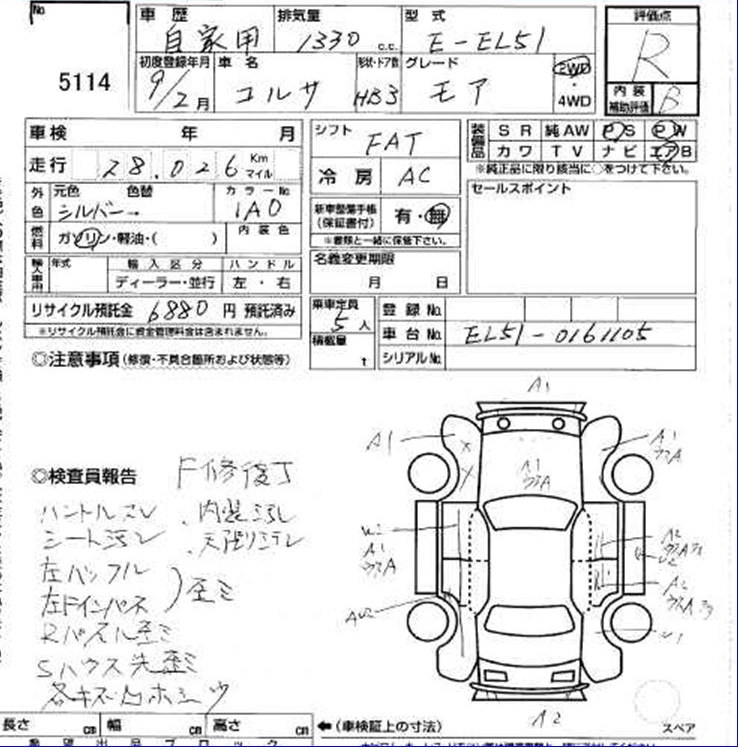 No.
5114
車歴 自家用
排気量 1330 c.c.
型式 E-EL51
評価点 R
初度登録年月 9/2月
車名 コルサ
形状・ドア数 HB3
グレード モア
2WD・4WD
内装補助評価 B
車検 年 月
走行 28.026 Km マイル
シフト FAT
冷房 AC
装備品 SR 純AW PS PW
カワ TV ナビ エアB
※純正品に限り該当に○をつけて下さい。
外色 元色 色替 カラーNo.
シルバー→ 1A0
燃料 ガソリン・軽油・( ) 内装色
新車整備手帳(保証書付) 有・無
※書類と一緒に保管下さい。
セールスポイント
輸入車用 年式 輸入区分 ハンドル
ディーラー・並行 左・右
名義変更期限
月 日
リサイクル預託金 6880 円 預託済み
※リサイクル預託金に資金管理料金は含まれません。
乗車定員 5人
積載量 t
登録No.
車台No. EL51-0161105
シリアルNo.
◎注意事項(修復・不具合箇所および状態等)
◎検査員報告
ハンドルスレ、内装汚レ
シート汚レ、天張リ汚レ
左バッフル
左ドインパネ
歪ミ
Rパネル歪ミ
Sハウス先歪ミ
各キズ凹
A1
A1
A1
ウスA
A1
ウスA
A1
ウスA
A2
A2
U1
A2
長さ cm 幅 cm 高さ cm ←(車検証上の寸法)
スペア
希望出品ブロック